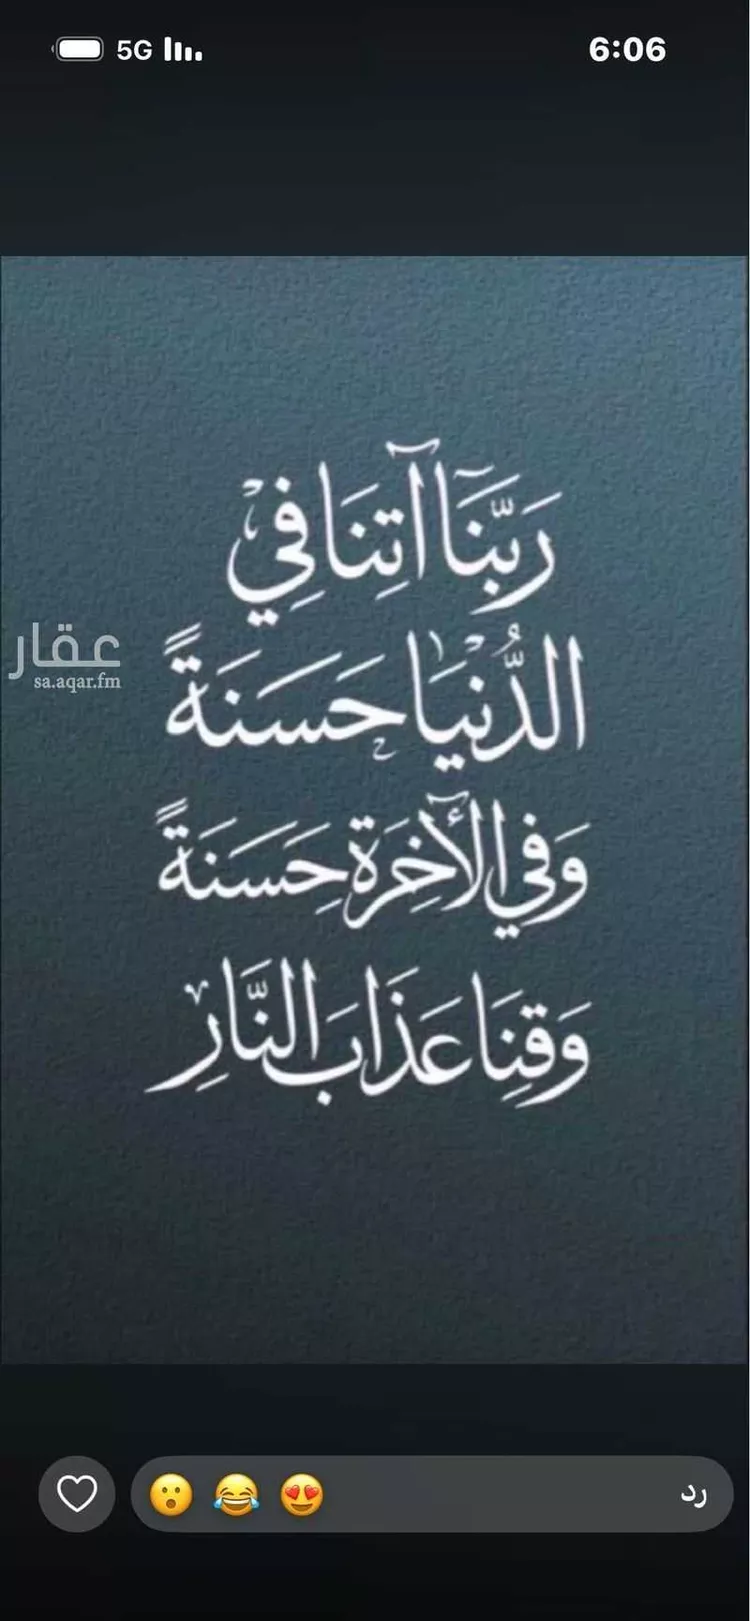 5G
6:06
رَبَّنَآ آتِنَا فِي
الدُّنْيَا حَسَنَةً
وَفِي الْأَخِرَةِ حَسَنَةً
وَقِنَا عَذَابَ النَّارِ
عقار
sa.aqar.fm
رد